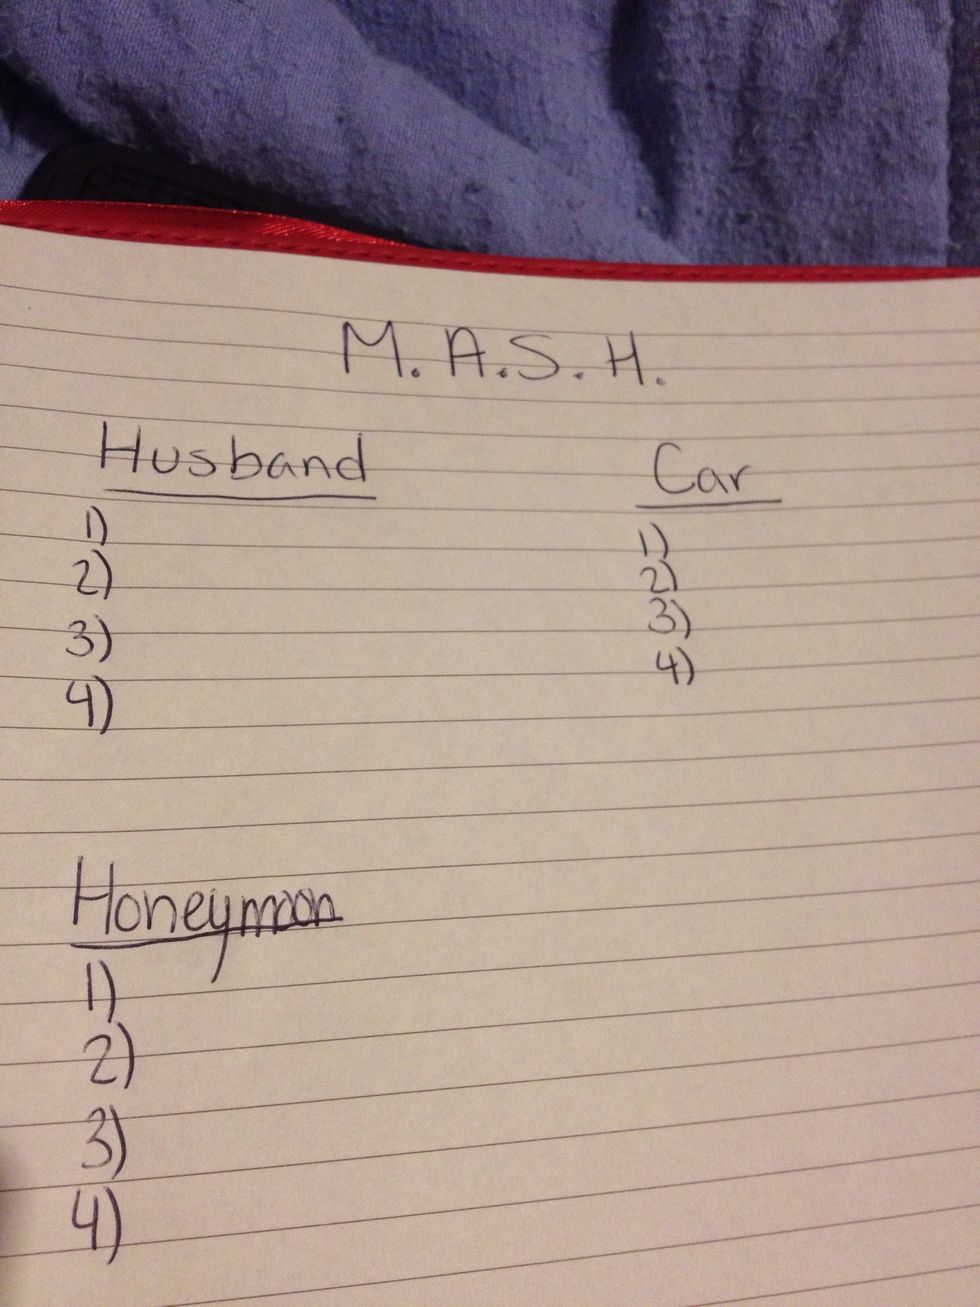 M.A.S.H.
Husband
1)
2)
3)
4)
Car
1)
2)
3)
4)
Honeymoon
1)
2)
3)
4)